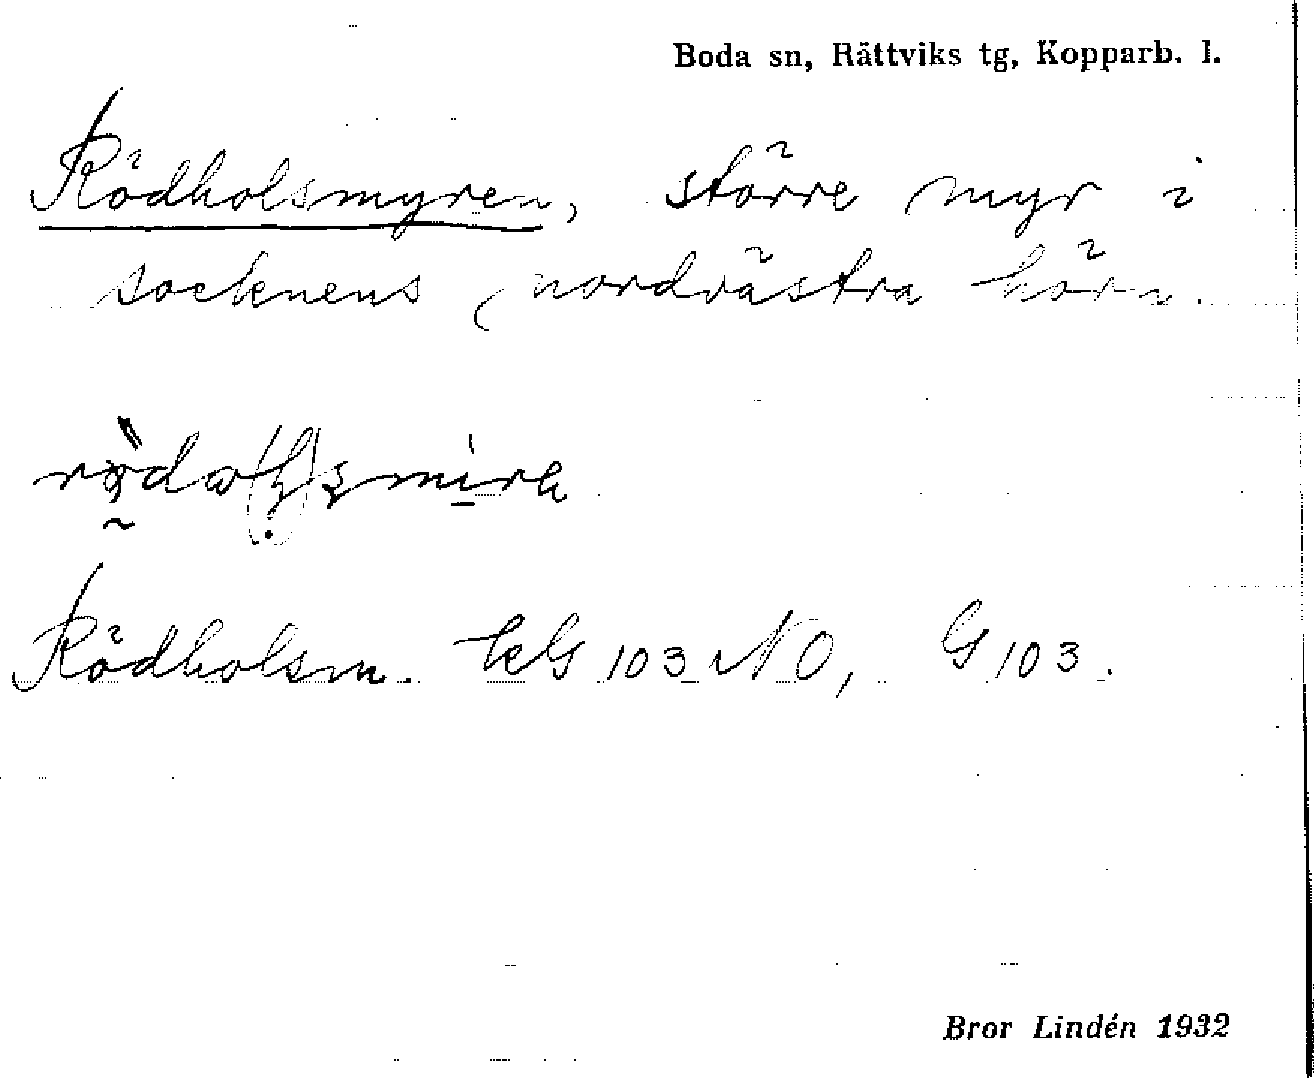 Boda sn, Rättviks tg, Kopparb. l.
Rödholsmyren, större myr i
socknens nordvästra hörn.
Rödholsm. kG 103 NO, G 103.
Bror Lindén 1932